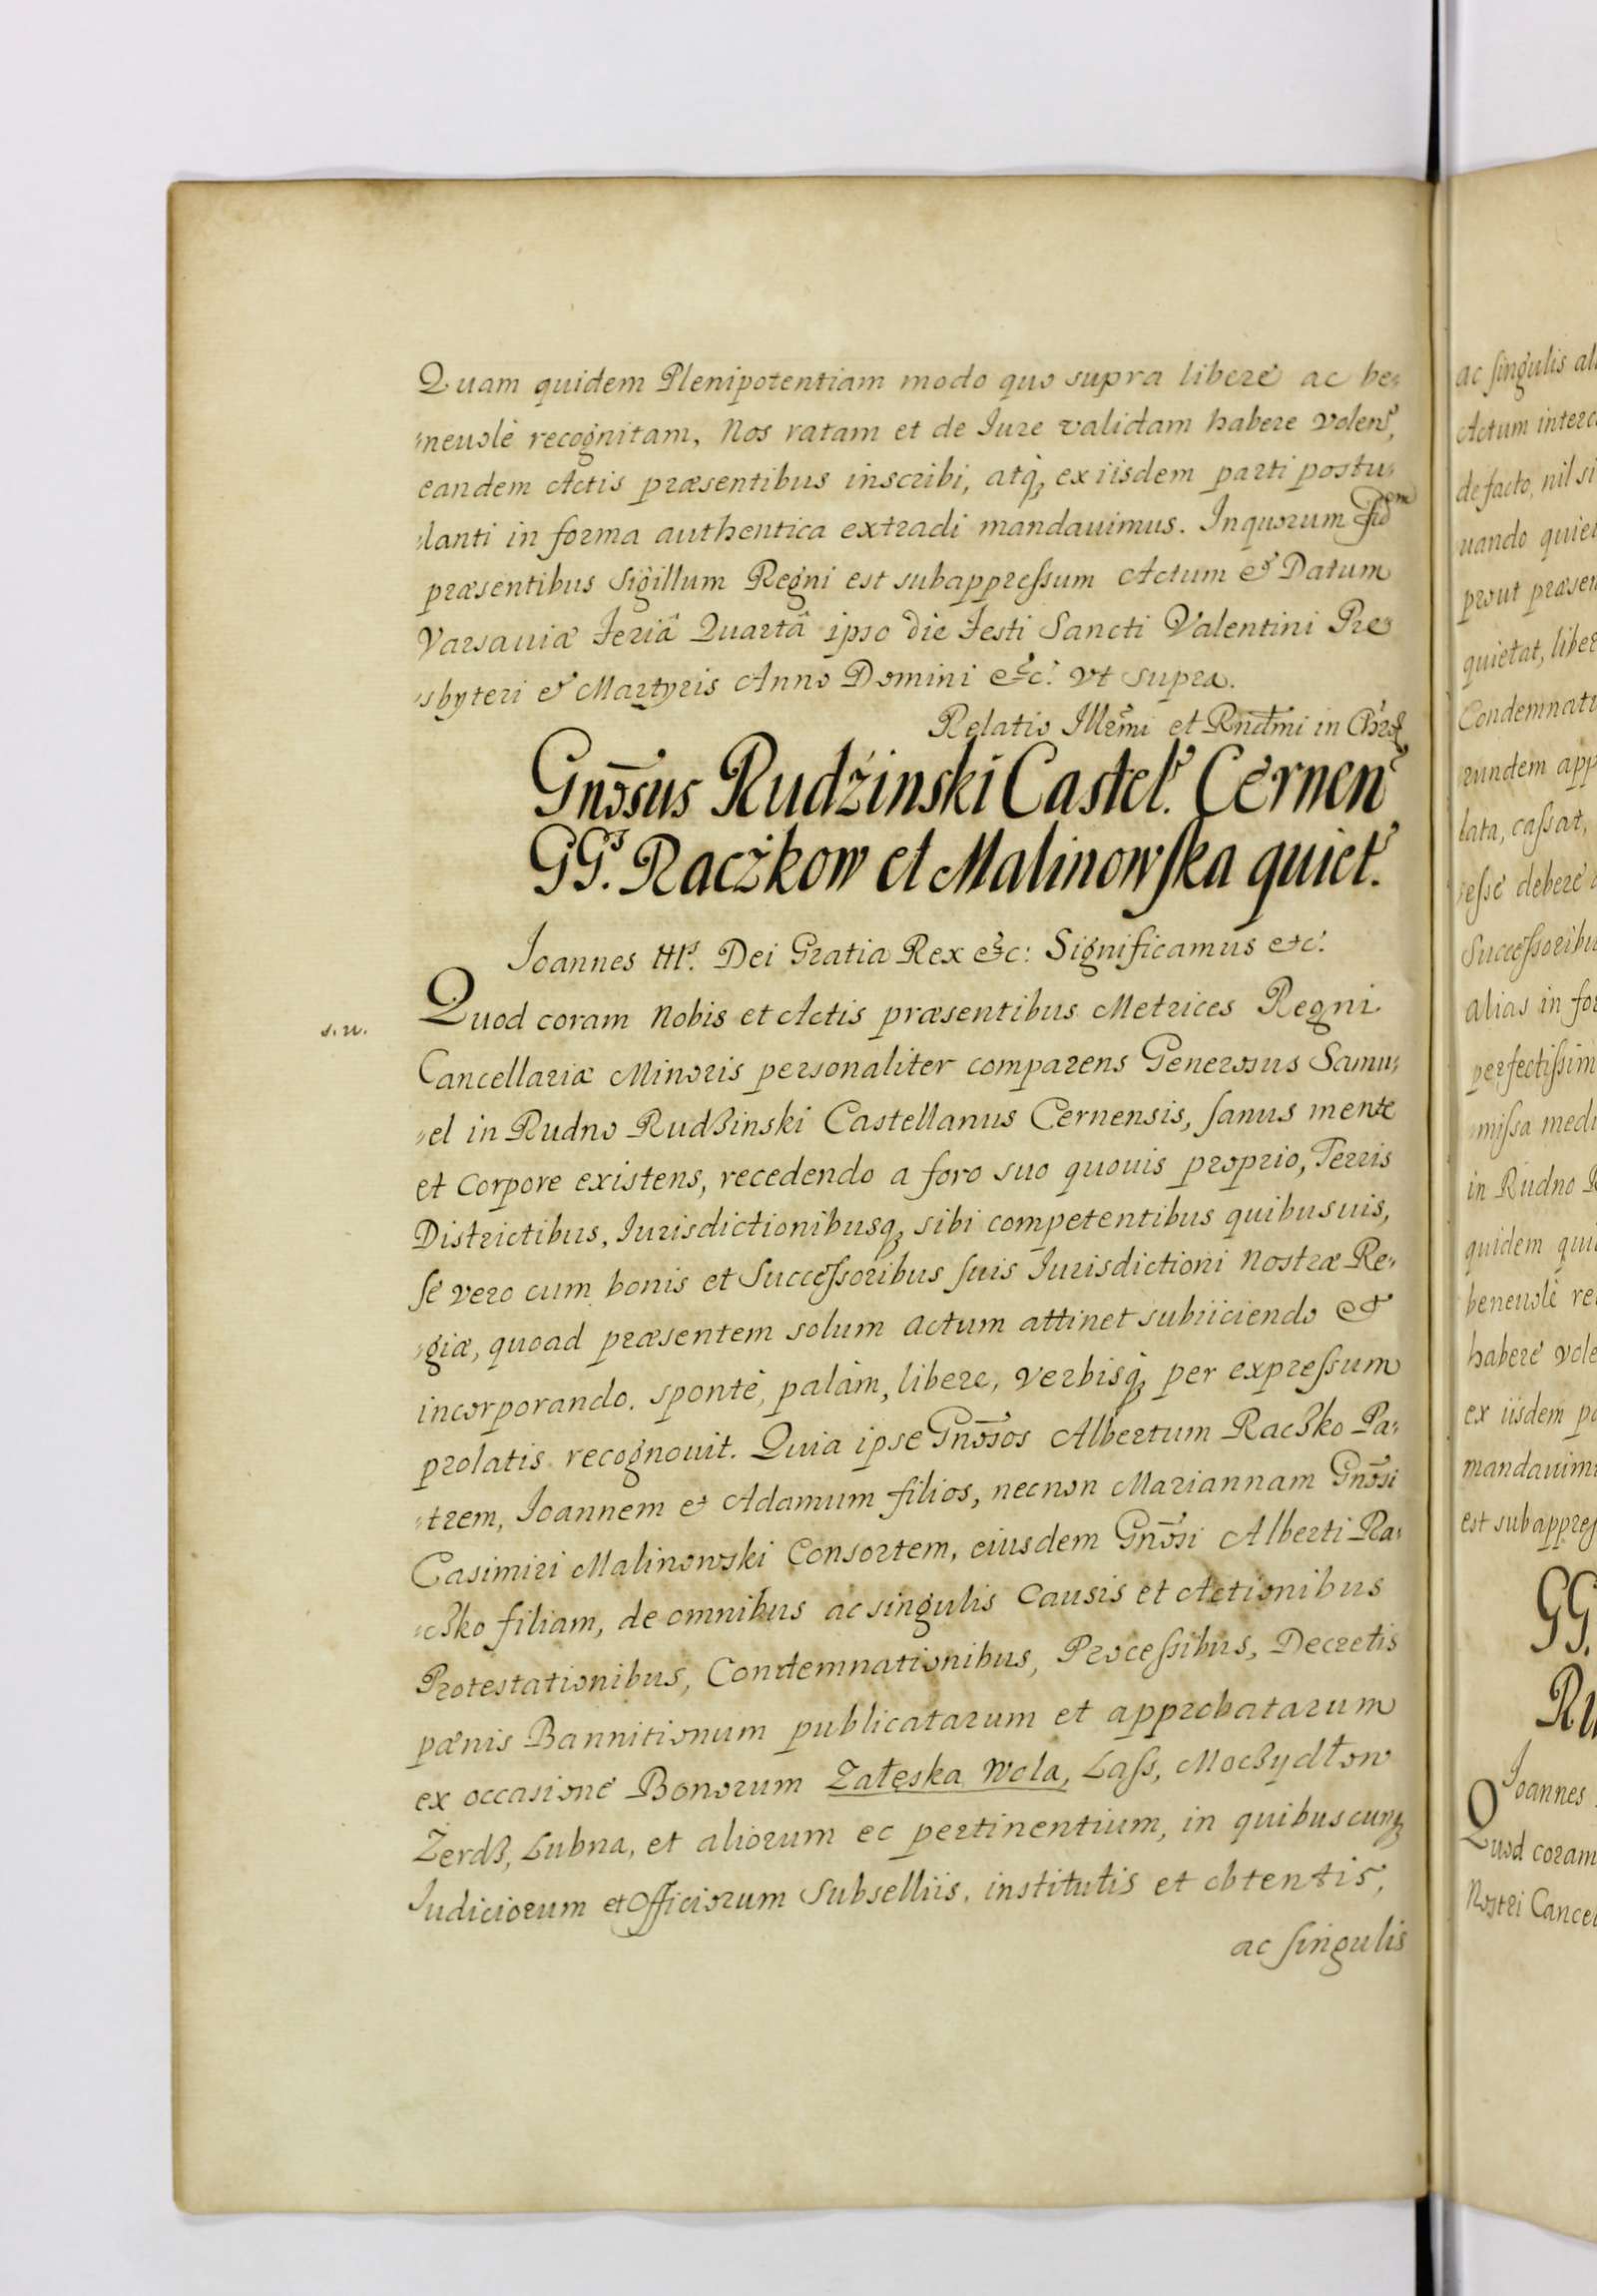 Quam quidem Plenipotentiam modo quo supra liberè ac be:
:neuolè recognitam, Nos ratam et de Iure validam habere volen̄s,
eandem Actis præsentibus inscribi, atq́ꝫ ex iisdem parti postu:
:lanti in forma authentica extradi mandauimus. In quorum fid^em
præsentibus Sigillum Regni est subappreſsum Actum & Datum
Varsauiæ Feriâ Quartâ ipso die Festi Sancti Valentini Pre
:sbyteri & Martyris Anno Domini &c. vt supra.
Relatio Illr̄mi et Rndm̄i in Chr̄o
Gnōsus Rudźinski Castel. Cernen
GG^s. Raczkow et Malinowſka quiet.
Joannes III^s. Dei Gratia Rex &c: Significamus etc.
s. w.
Quod coram Nobis et Actis præsentibus Metrices Regni
Cancellariæ Minoris personaliter comparens Generosus Samu:
:el in Rudno Rudʒinski Castellanus Cernensis, ſanus mente
et corpore existens, recedendo a foro suo quouis proprio, Terris
Districtibus, Iurisdictionibusqꝫ sibi competentibus quibusuis,
ſe vero cum bonis et Succeſsoribus ſuis Iurisdictioni Nostræ Re:
:giæ, quoad præsentem solum actum attinet subiiciendo &
incorporando. spontè, palàm, libere, verbisq́ꝫ per expreſsum
prolatis recognouit. Quia ipse Gnōsos Albertum Racʒko Pa:
:trem, Joannem & Adamum filios, necnon Mariannam Gnōsi
Casimiri Malinowski Consortem, eiusdem Gnōsi Alberti Ra:
:cʒko filiam, de omnibus ac singulis Causis et Actionibus
Protestationibus, Condemnationibus, Proceſsibus, Decretis
pænis Bannitionum publicatarum et approbatarum
ex occasione Bonorum Załęska Wola, Laſs, Mocʒydłow
Żerdʒ, Lubna, et aliorum ec pertinentium, in quibuscunqꝫ
Iudiciorum et Officiorum Subselliis, institutis et obtentis,
ac ſingulis
ac ſingulis al
Actum interc
de facto, nil si
uando quie
prout præsen
quietat, liber
Condemnati
rundem app
lata, caſsat,
:eſse debere
Succeſsoribu
alias in for
perfectiſsim
:miſsa medi
in Rudno R
quidem qui
beneuolè re
habere vole
ex iisdem pa
mandauim
est subappreſ
GG.
Ru
Joannes
Quod coram
Nostri Cancel